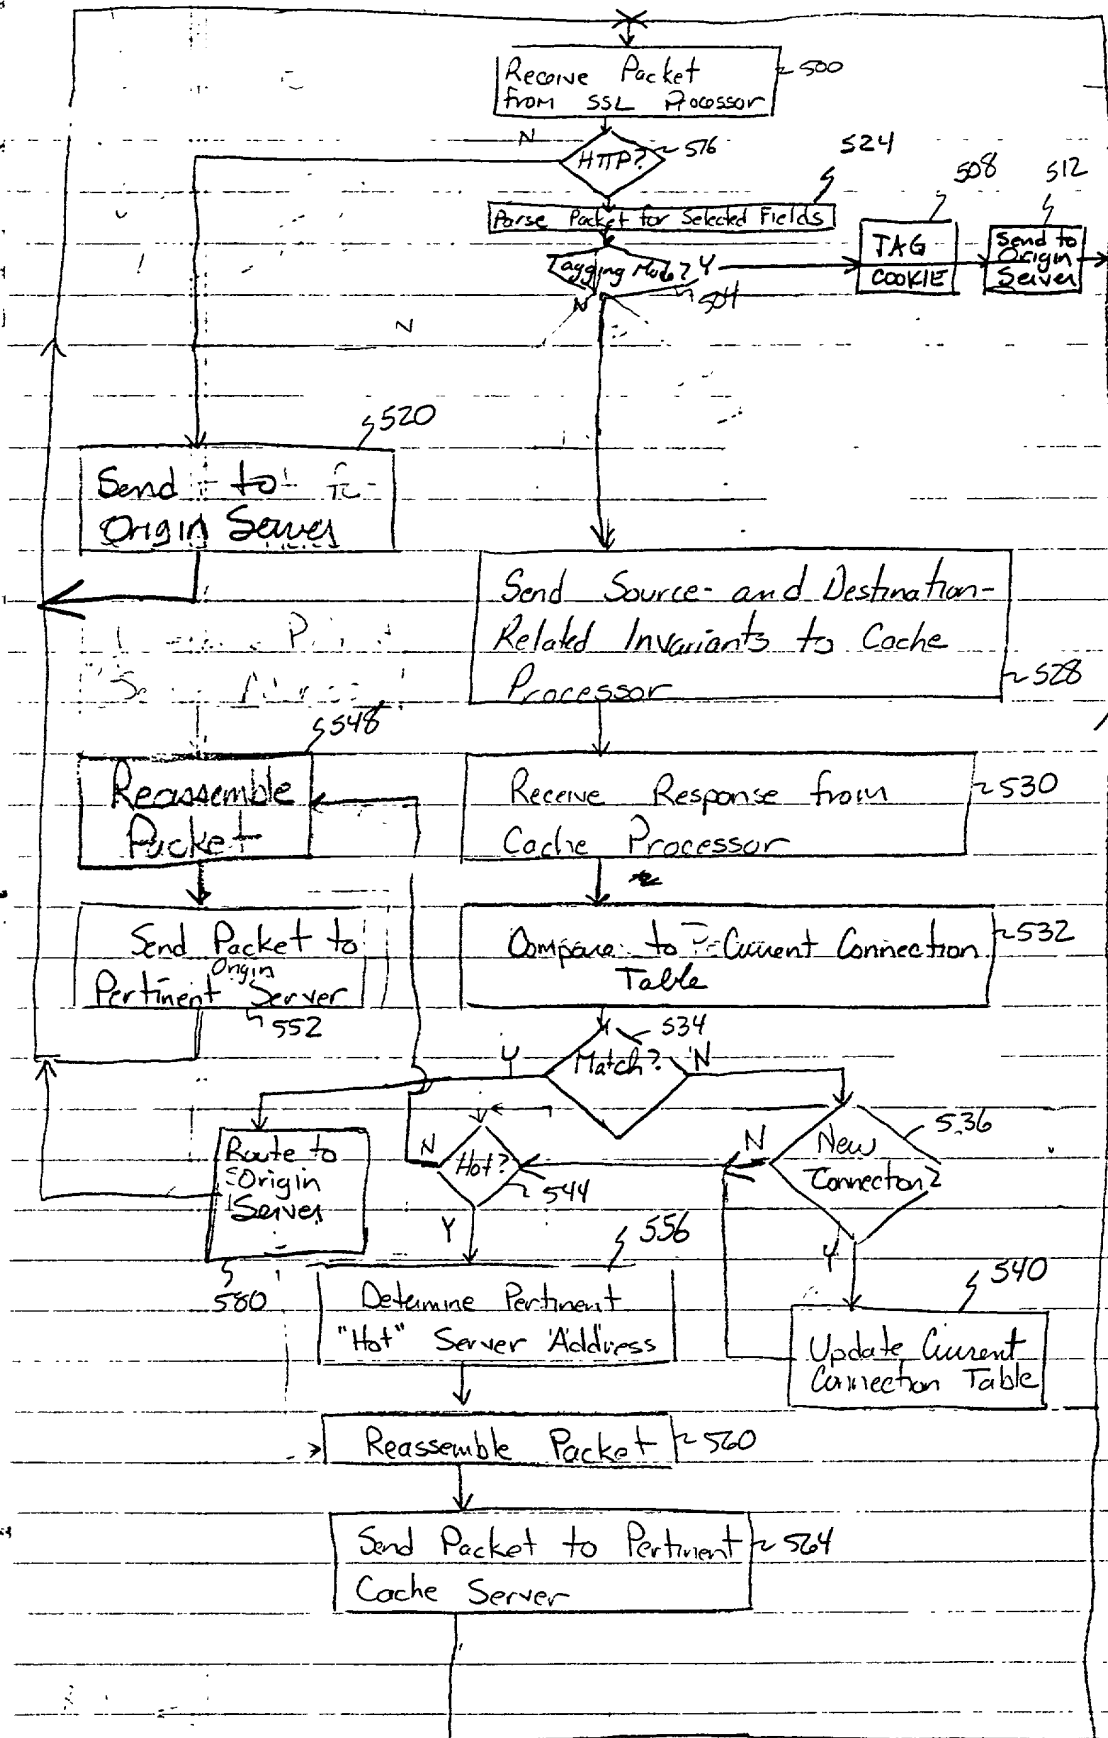 Receive Packet
from SSL Processor
500
N
HTTP?
516
524
508
512
Parse Packet for Selected Fields
Tagging Mode?
Y
504
N
TAG
COOKIE
Send to
Origin
Server
N
520
Send to
Origin Server
Send Source- and Destination-
Related Invariants to Cache
Processor
528
548
Reassemble
Packet
Receive Response from
Cache Processor
530
Send Packet to
Origin
Pertinent Server
552
Compare to Current Connection
Table
532
534
Match?
Y
N
536
New
Connection?
N
Y
Route to
Origin
Server
580
Hot?
N
544
Y
556
540
Determine Pertinent
"Hot" Server Address
Update Current
Connection Table
Reassemble Packet
560
Send Packet to Pertinent
Cache Server
564